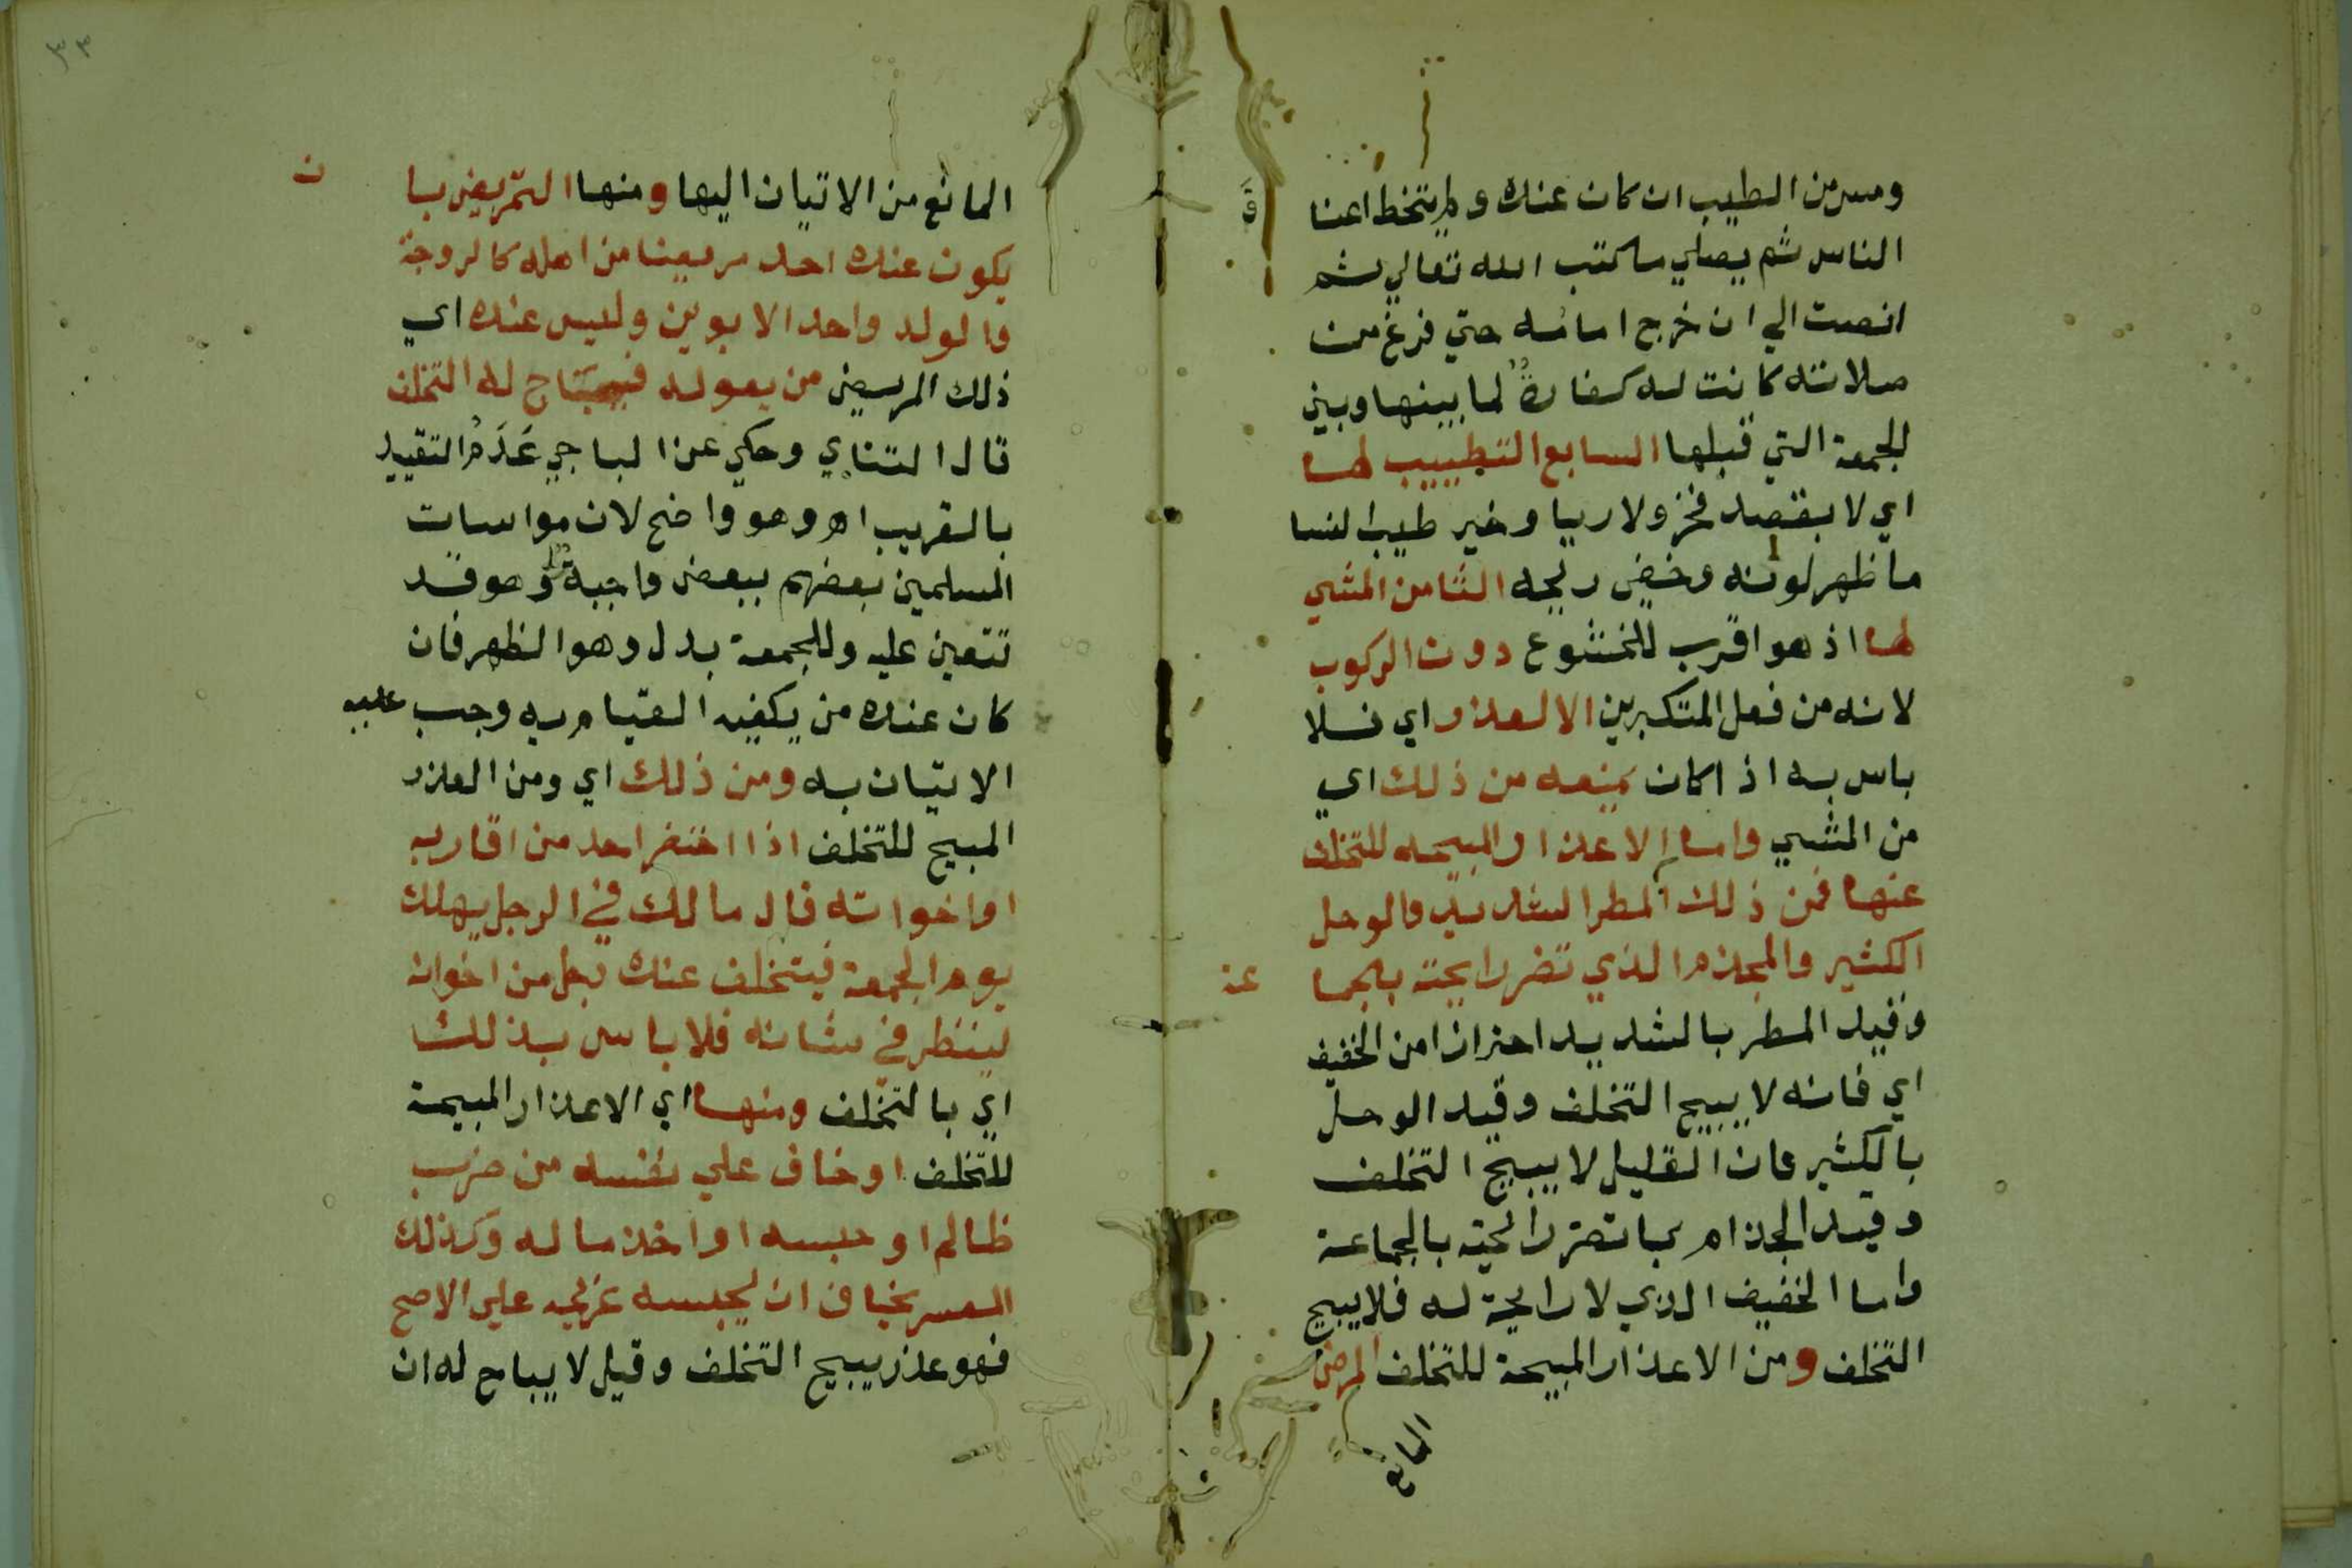 ومس من الطيب ان كان عنده ولم يتخط اعنا
ق
الناس ثم يصلي ما كتب الله تعالي ثم
انصت الي ان خرج امامه حتي فرغ من
صلاته كانت له كفارة لما بينها وبين
الجمعة التي قبلها السابع التطييب لها
اي لا بقصد فخر ولا ريا وخير طيب النسا
ما ظهر لونه وخفي ريحه الثامن المشي
لها اذ هو اقرب للخشوع دون الركوب
لانه من فعل المتكبرين الا لعذر اي فلا
باس به اذا كان يمنعه من ذلك اي
من المشي واما الاعذار المبيحه للتخلف
عنها فمن ذلك المطر الشديد والوحل
الكثير والمجذم الذي تضر رايحته بالجما
عة
وقيد المطر بالشديد احترازا من الخفيف
اي فانه لا يبيح التخلف وقيد الوحل
بالكثير فان القليل لا يبيح التخلف
وقيد الجذام بما تضر رائحته بالجماعة
واما الخفيف الذي لا رايحة له فلا يبيح
التخلف ومن الاعذار المبيحة للتخلف المرض
المانع
٣٣
المانع من الاتيان اليها ومنها التمريض با
ن
يكون عنده احد مريضا من اهله كالزوجة
والولد واحد الابوين وليس عنده اي
ذلك المريض من يعوله فيحتاج له التخلف
قال التتاي وحكي عن الباجي عَدَمُ التقييد
بالقريب اه وهو واضح لان مواسات
المسلمين بعضهم ببعض واجبة وهو قد
تتعين عليه وللجمعة بدل وهو الظهر فان
كان عنده من يكفيه القيام به وجب عليه
الاتيان به ومن ذلك اي ومن العذر
المبيح للتخلف اذا احتضر احد من اقاربه
او اخوانه قال مالك في الرجل يهلك
يوم الجمعة فيتخلف عنده رجل من اخوانه
لينظر في شانه فلا باس بذلك
اي بالتخلف ومنها اي الاعذار المبيحة
للتخلف او خاف علي نفسه من ضرب
ظالم او حبسه او اخذ ماله وكذلك
المعسر يخاف ان يحبسه غريمه علي الاصح
فهو عذر يبيح التخلف وقيل لا يباح له ان